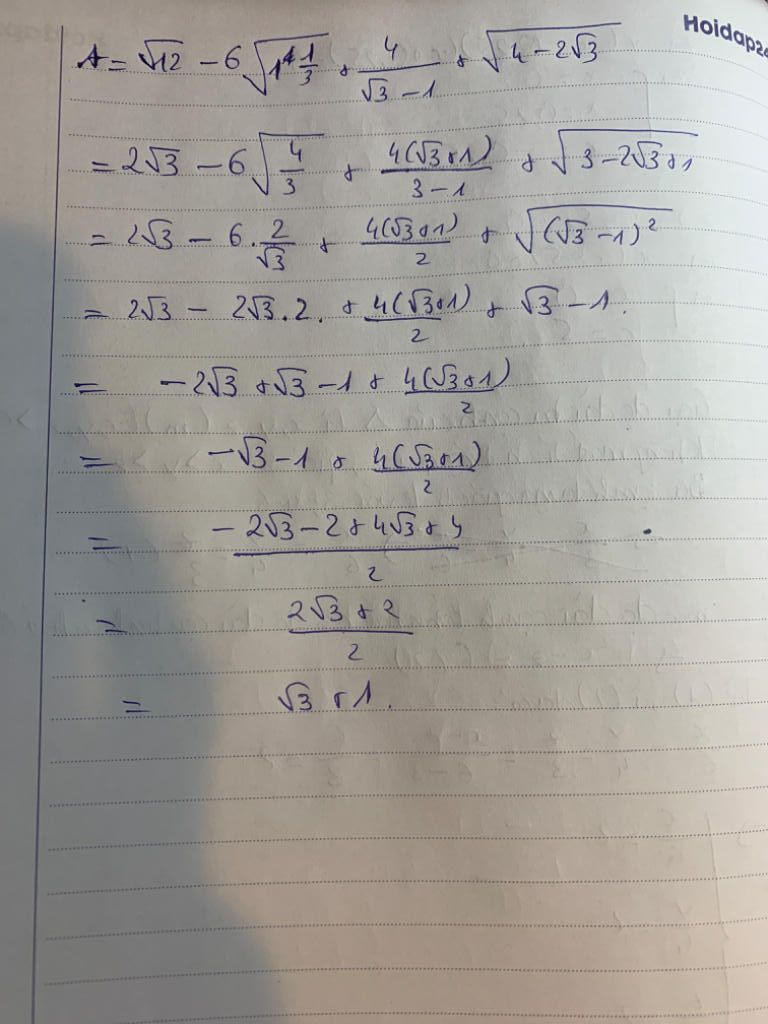 Hoidap2
A = √12 − 6√(1+1/3) + 4/(√3 − 1) + √(4 − 2√3)
= 2√3 − 6√(4/3) + 4(√3+1)/(3 − 1) + √(3 − 2√3 + 1)
= 2√3 − 6 . 2/√3 + 4(√3+1)/2 + √((√3 − 1)²)
= 2√3 − 2√3 . 2 . + 4(√3+1)/2 + √3 − 1 .
= − 2√3 + √3 − 1 + 4(√3+1)/2
= −√3 − 1 + 4(√3+1)/2
= (− 2√3 − 2 + 4√3 + 4)/2
= (2√3 + 2)/2
= √3 + 1 .